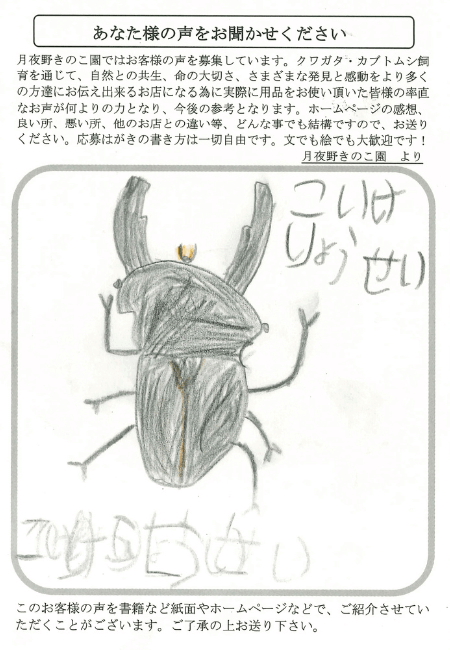 あなた様の声をお聞かせください
月夜野きのこ園ではお客様の声を募集しています。クワガタ・カブトムシ飼
育を通じて、自然との共生、命の大切さ、さまざまな発見と感動をより多く
の方達にお伝え出来るお店になる為に実際に用品をお使い頂いた皆様の率直
なお声が何よりの力となり、今後の参考となります。ホームページの感想、
良い所、悪い所、他のお店との違い等、どんな事でも結構ですので、お送り
ください。応募はがきの書き方は一切自由です。文でも絵でも大歓迎です！
月夜野きのこ園　より
こいけ
りょうせい
このお客様の声を書籍など紙面やホームページなどで、ご紹介させてい
ただくことがございます。ご了承の上お送り下さい。